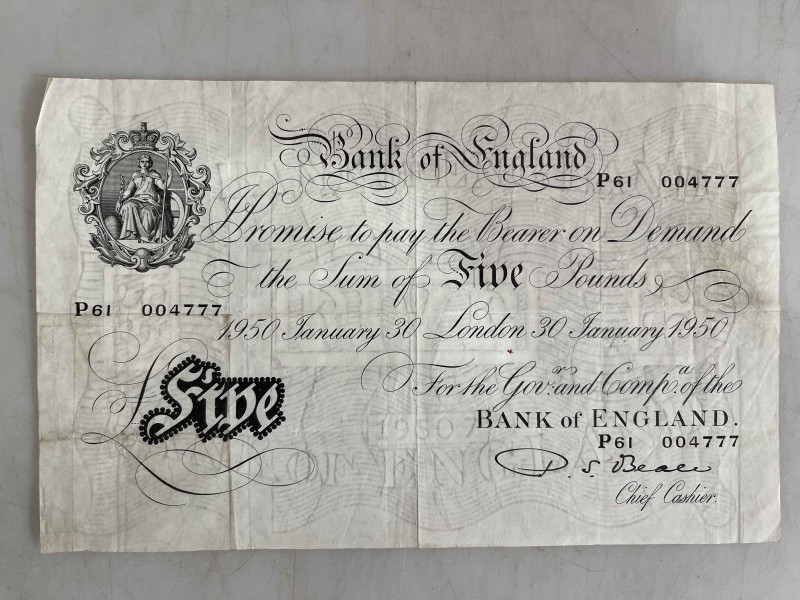 Bank of England
P61 004777
I Promise to pay the Bearer on Demand
the Sum of Five Pounds
P61 004777
1950 January 30 London 30 January 1950
For the Govr. and Compa. of the
BANK of ENGLAND.
£Five
P61 004777
Chief Cashier.